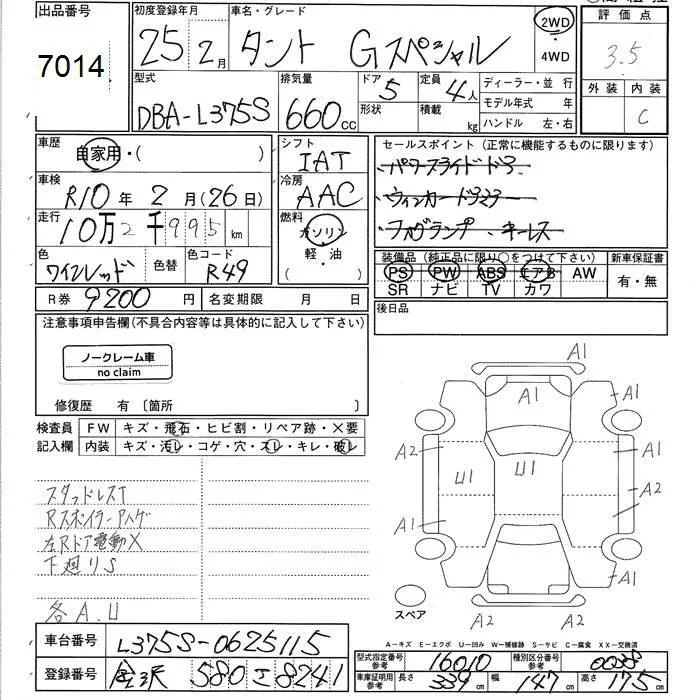 出品番号
7014
初度登録年月
25 2月
車名・グレード
タント Gスペシャル
2WD
4WD
評価点
3.5
外装 内装
C
型式
DBA-L375S
排気量
660cc
ドア 5
形状
定員 4人
積載 kg
ディーラー・並行
モデル年式 年
ハンドル 左・右
車歴
自家用・( )
車検
R10年 2月(26日)
走行
10万2千995km
色
ワインレッド
色替
色コード
R49
R券 9200円
名変期限 月 日
シフト
IAT
冷房
AAC
燃料
ガソリン
軽・油
( )
セールスポイント(正常に機能するものに限ります)
・パワースライドドア
・ウィンカードアミラー
・フォグランプ ・キーレス
装備品(純正品に限り○をつけて下さい)
新車保証書
PS PW ABS エアB AW
SR ナビ TV カワ
有・無
後日品
注意事項申告欄(不具合内容等は具体的に記入して下さい)
ノークレーム車
no claim
修復歴 有〔箇所 〕
検査員
記入欄
FW キズ・飛石・ヒビ割・リペア跡・×要
内装 キズ・汚レ・コゲ・穴・スレ・キレ・破レ
スタッドレスT
Rスポイラーハゲ
左Rドア電動X
下廻りS
各A.U
A1
A1
A1
A2
A1
U1
U1
A2
A1
A1
A1
A2
A2
スペア
A-キズ E-エクボ U-凹み W-補修跡 S-サビ C-腐食 XX-交換済
車台番号
L375S-0625115
登録番号
金沢 580 え 8241
型式指定番号
参考
16010
種別区分番号
参考
車庫証明用
参考
長さ 339cm
幅 147cm
高さ 175cm